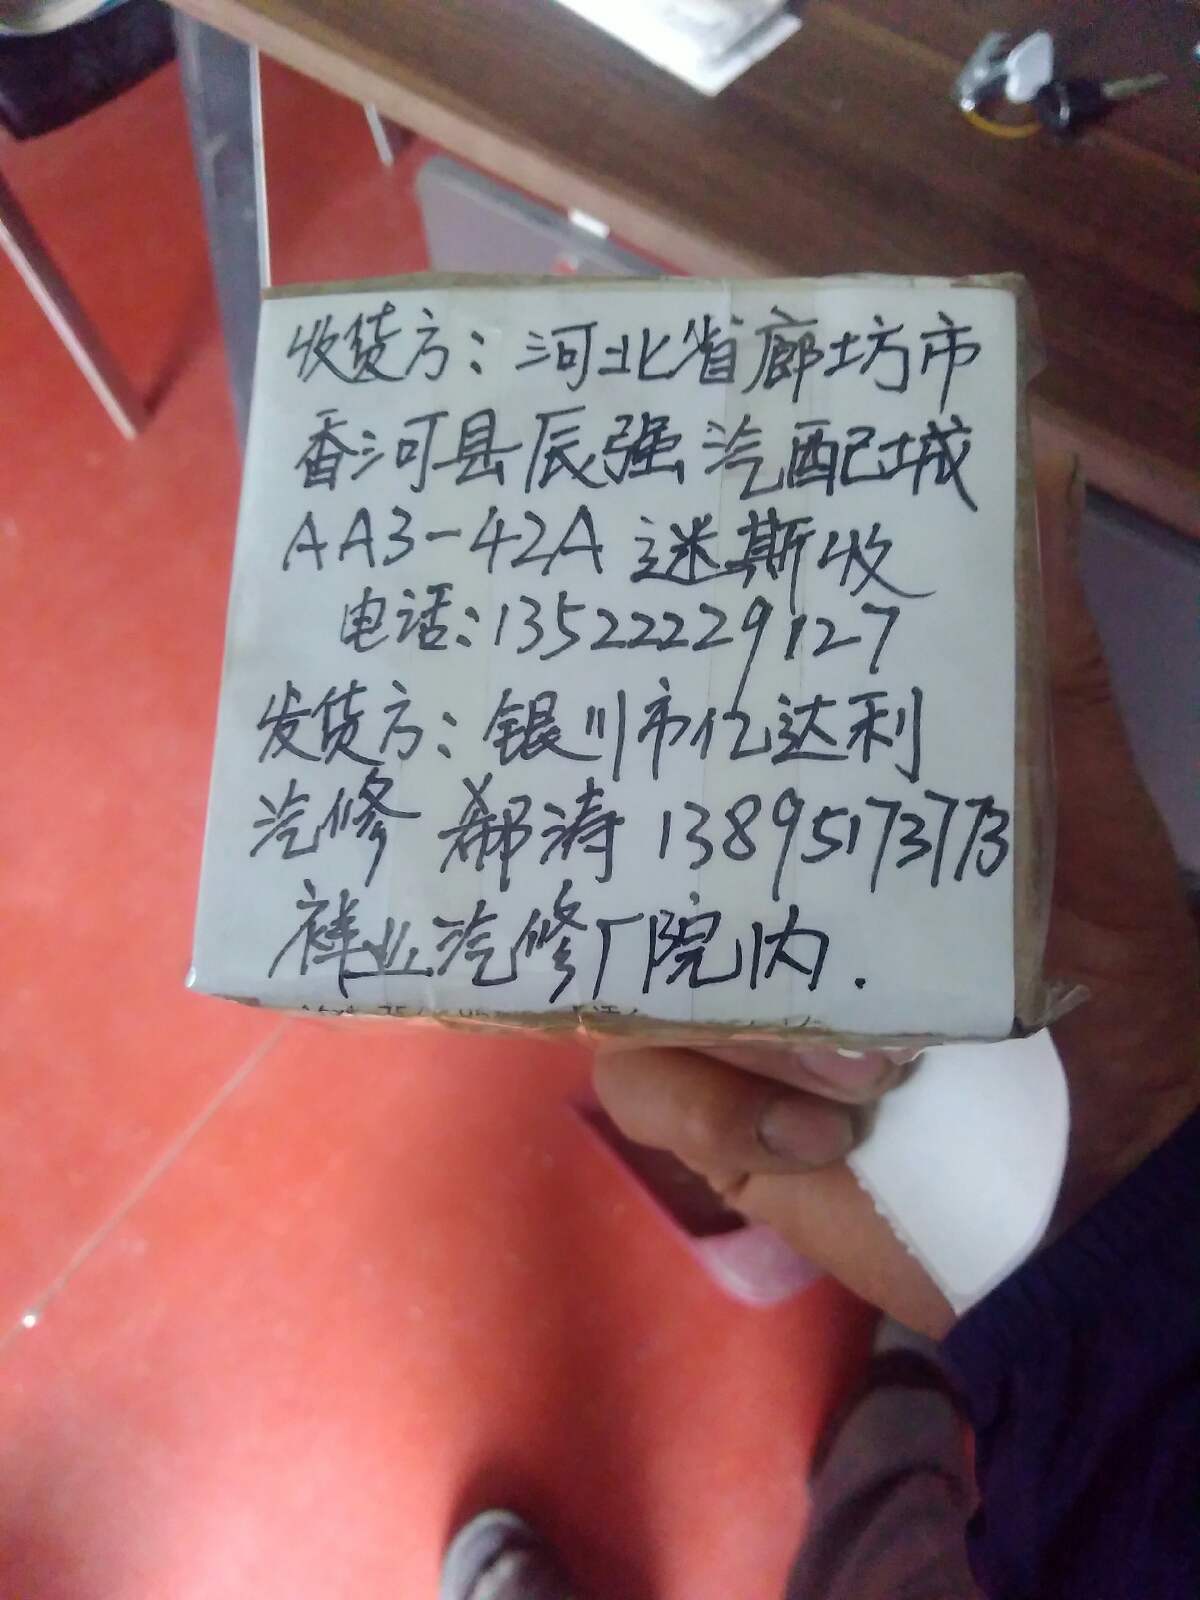 收货方：河北省廊坊市
香河县辰强汽配城
AA3-42A 迷斯收
电话：13522229127
发货方：银川市亿达利
汽修 郗涛 13895173773
祥业汽修厂院内.